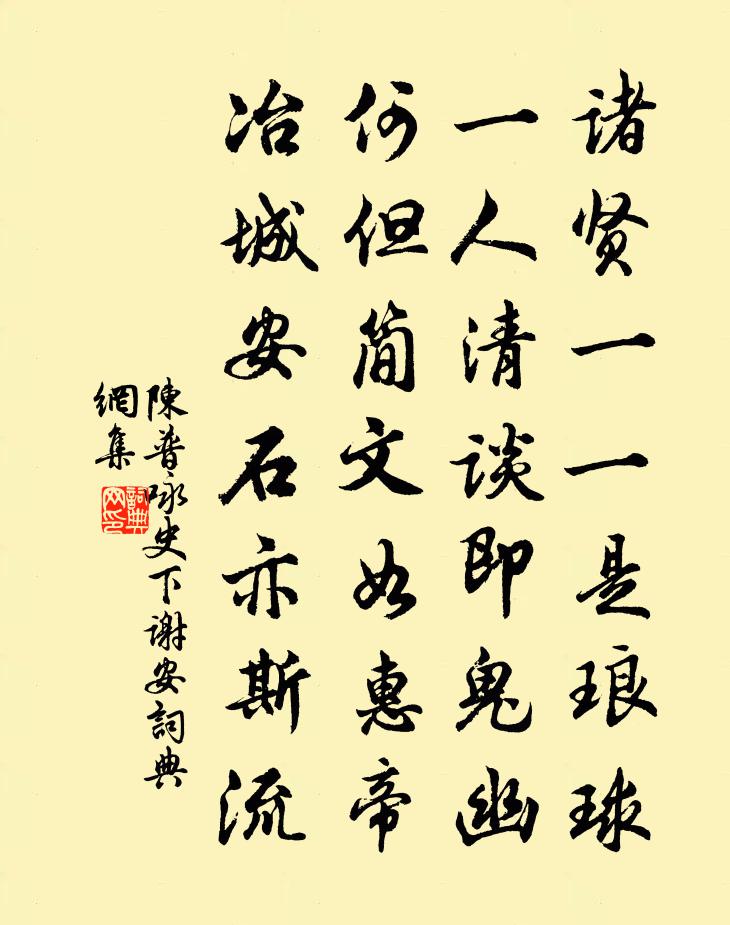 诸贤一一是琅球
一人清谈即鬼幽
何但简文如惠帝
冶城安石亦斯流
陳普咏史下谢安詞典
網集
詞典
网印